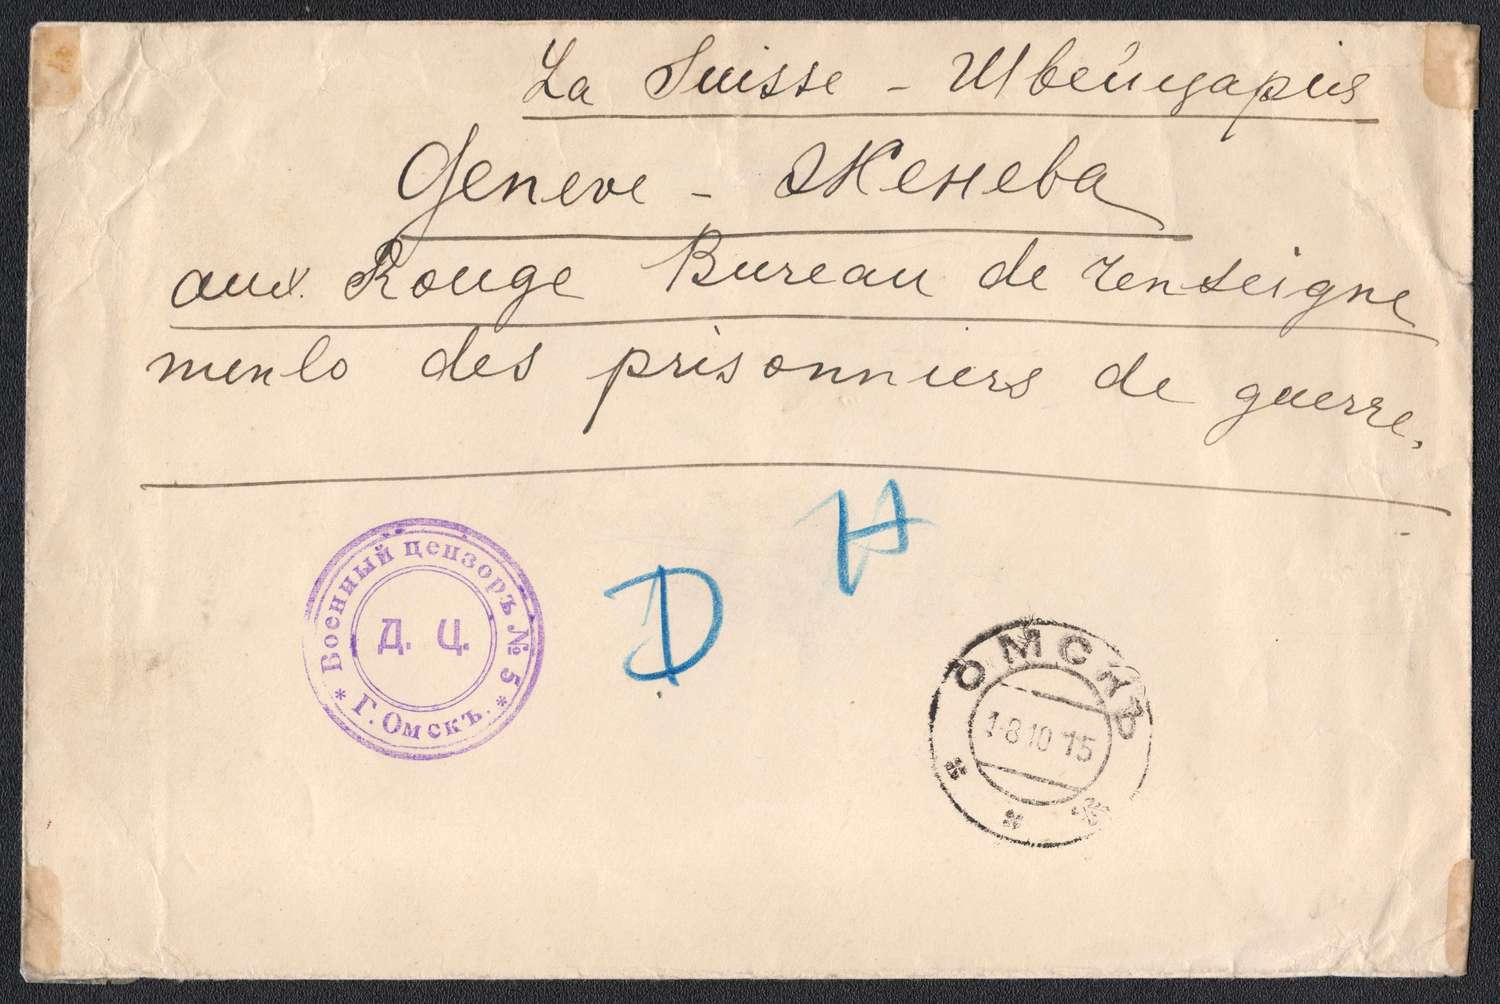 La Suisse - Швейцарія
Geneve - Женева
aux. Rouge Bureau de renseigne
mento des prisonniers de guerre.
D H
Военный цензоръ № 5
Д. Ц.
* Г. Омскъ. *
ОМСКЪ
1-8 10 15